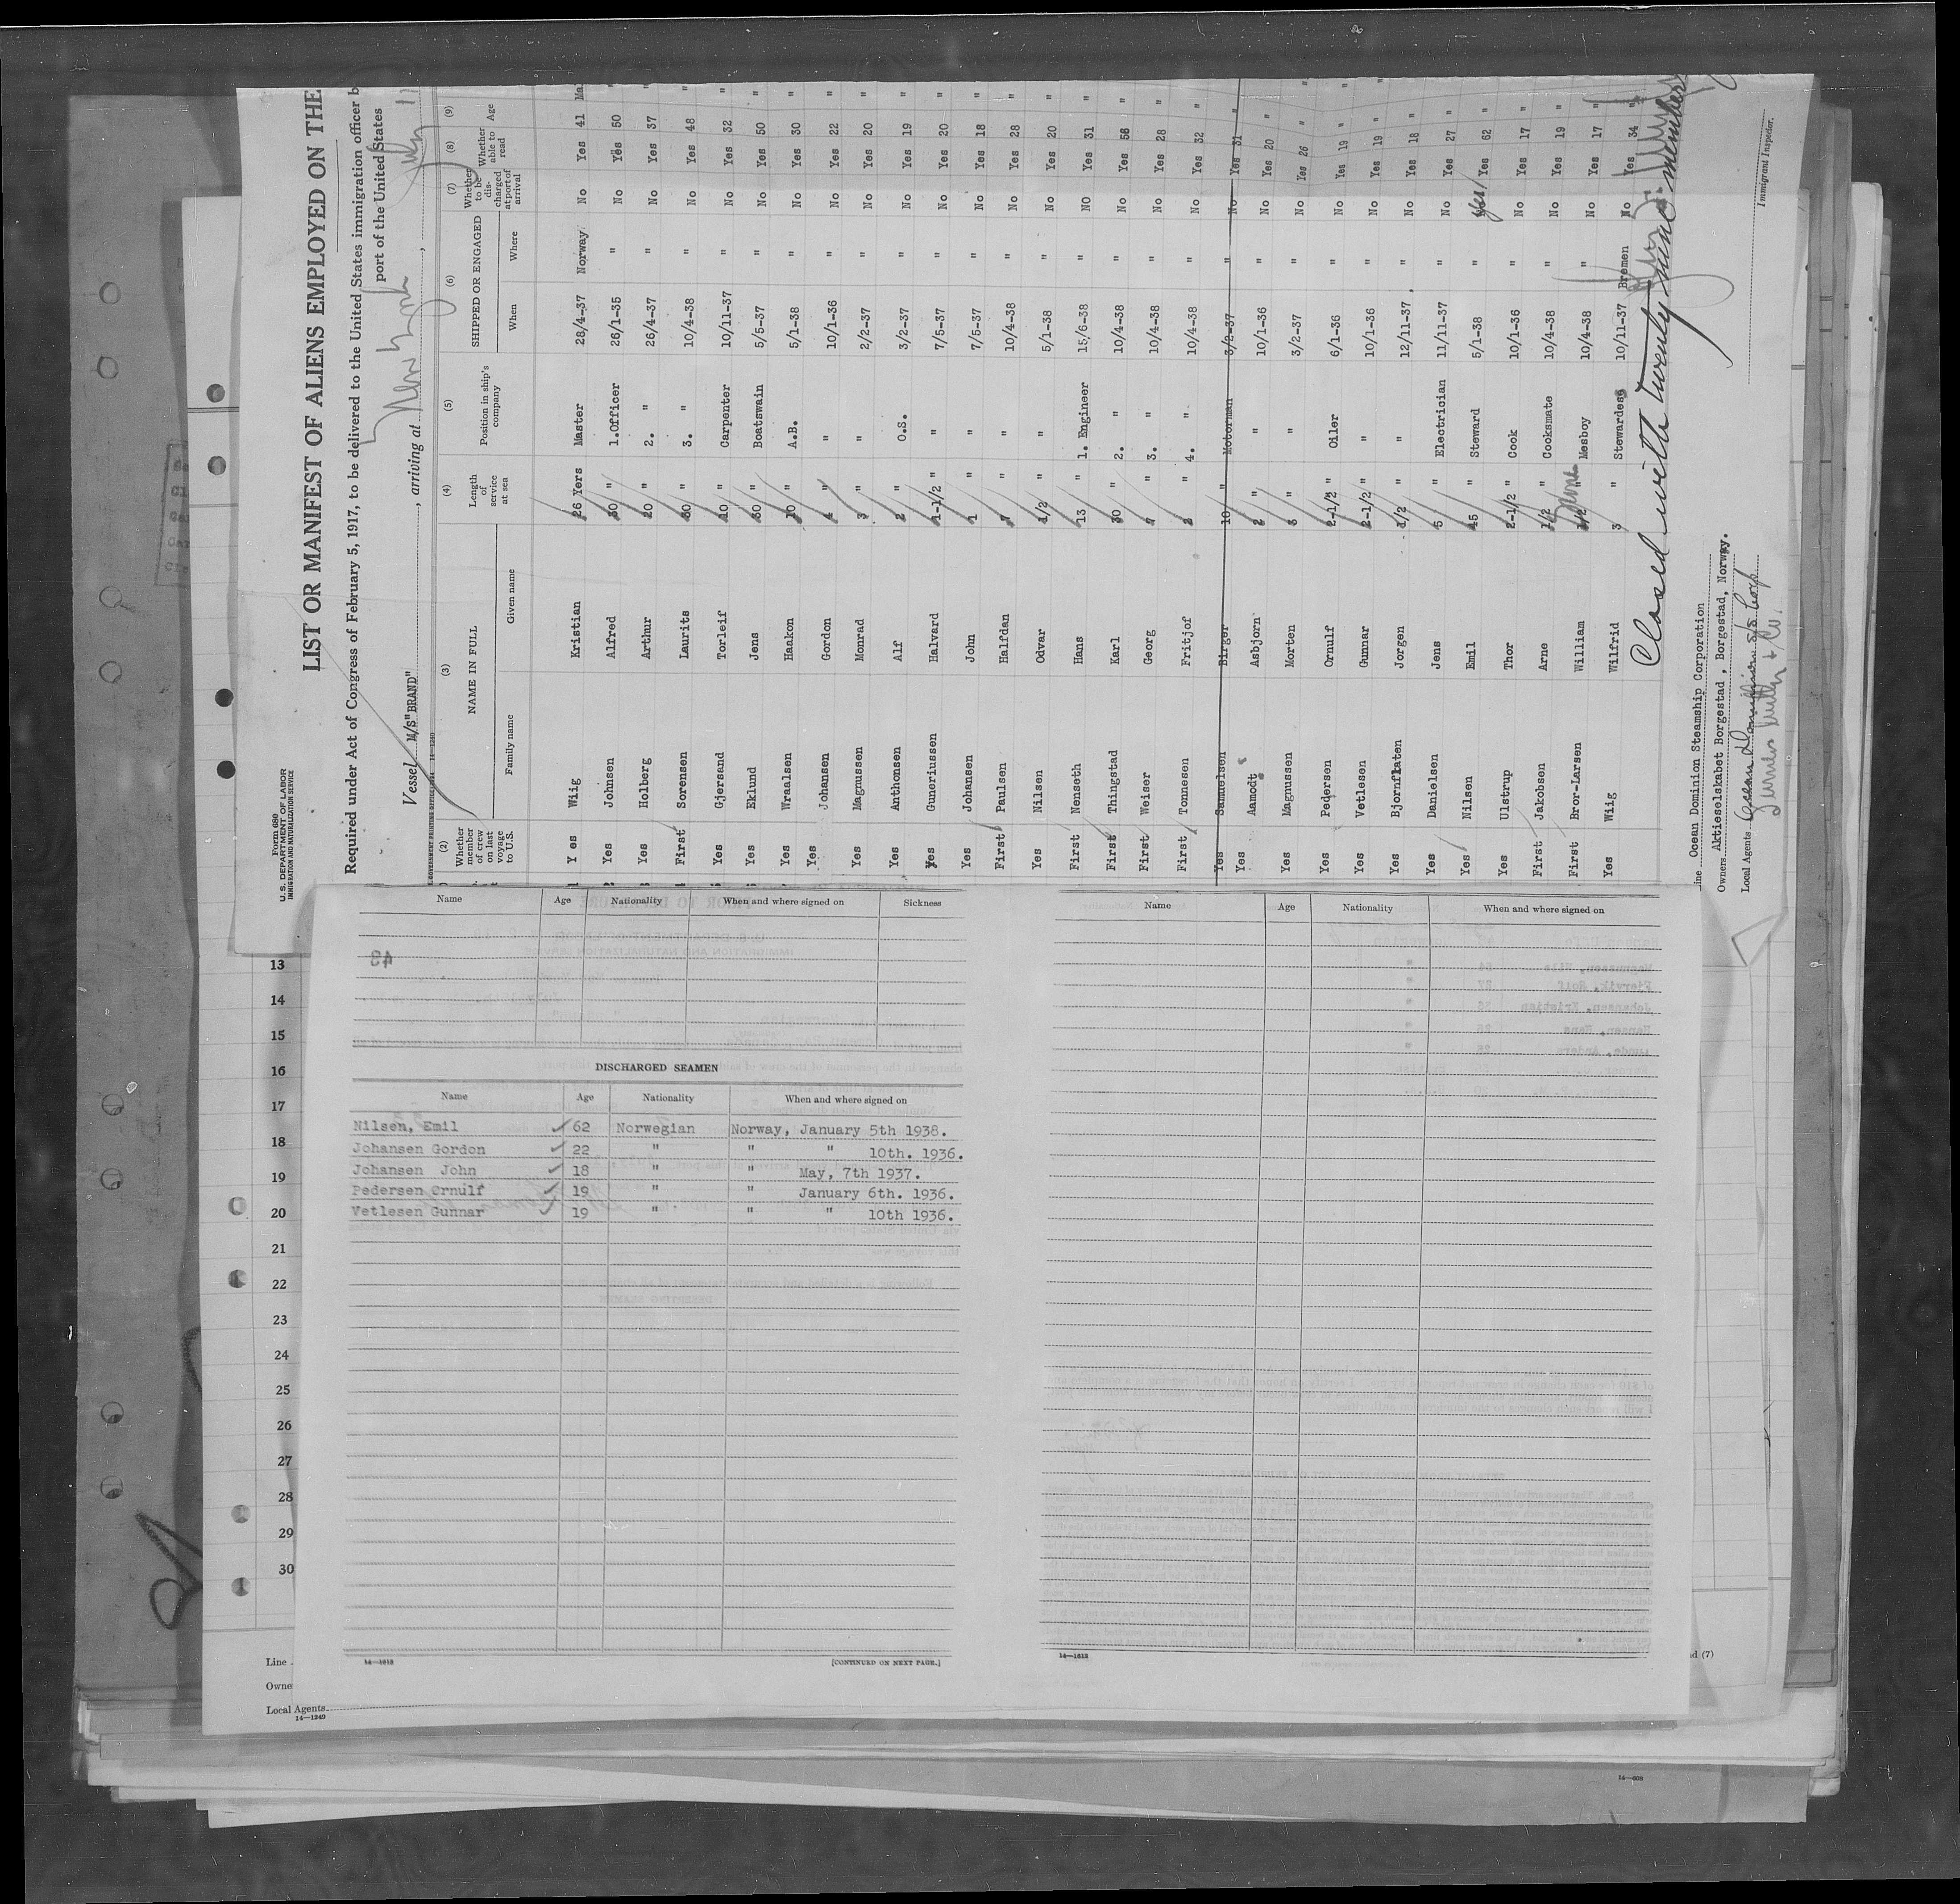 Form 680
U.S. DEPARTMENT OF LABOR
IMMIGRATION AND NATURALIZATION SERVICE
LIST OR MANIFEST OF ALIENS EMPLOYED ON THE
Required under Act of Congress of February 5, 1917, to be delivered to the United States immigration officer b
port of the United States
Vessel M/S"BRAND" , arriving at New York , July 11
(2) (3) (4) (5) (6) (7) (8) (9)
Whether member of crew on last voyage to U.S. NAME IN FULL Family name Given name Length of service at sea Position in ship's company SHIPPED OR ENGAGED When Where Whether to be discharged at port of arrival Whether able to read Age
Y es Wiig Kristian 26 Yers Master 28/4-37 Norway No Yes 41 Ma
Yes Johnsen Alfred 30 " 1.Officer 26/1-35 " No Yes 50 "
Yes Holberg Arthur 20 " 2. " 26/4-37 " No Yes 37 "
First Sorensen Laurits 30 " 3. " 10/4-38 " No Yes 48 "
Yes Gjersand Torleif 10 " Carpenter 10/11-37 " No Yes 32 "
Yes Eklund Jens 30 " Boatswain 5/5-37 " No Yes 50 "
Yes Wraalsen Haakon 10 " A.B. 5/1-38 " No Yes 30 "
Yes Johansen Gordon 4 " " 10/1-36 " No Yes 22 "
Yes Magnussen Monrad 3 " " 2/2-37 " No Yes 20 "
Yes Anthonsen Alf 2 " O.S. 3/2-37 " No Yes 19 "
Yes Guneriussen Halvard 1-1/2 " " 7/5-37 " No Yes 20 "
Yes Johansen John 1 " " 7/5-37 " No Yes 18 "
First Paulsen Halfdan 7 " " 10/4-38 " No Yes 28 "
Yes Nilsen Odvar 1/2 " " 5/1-38 " No Yes 20 "
First Nenseth Hans 13 " 1. Engineer 15/6-38 " NO Yes 31 "
First Thingstad Karl 30 " 2. " 10/4-38 " No Yes 56 "
First Weiser Georg 7 " 3. " 10/4-38 " No Yes 28 "
First Tonnesen Fritjof 2 " 4. " 10/4-38 " No Yes 32 "
Yes Samuelsen Birger 10 " Motorman 3/2-37 " No Yes 31 "
Yes Aamodt Asbjorn 2 " " 10/1-36 " No Yes 20 "
Yes Magnussen Morten 3 " " 3/2-37 " No Yes 26 "
Yes Pedersen Ornulf 2-1/2 " Oiler 6/1-36 " No Yes 19 "
Yes Vetlesen Gunnar 2-1/2 " " 10/1-36 " No Yes 19 "
Yes Bjornflaten Jorgen 1/2 " " 12/11-37 " No Yes 18 "
Yes Danielsen Jens 5 " Electrician 11/11-37 " No Yes 27 "
Yes Nilsen Emil 45 " Steward 5/1-38 " Yes Yes 62 "
Yes Ulstrup Thor 2-1/2 " Cook 10/1-36 " No Yes 17 "
First Jakobsen Arne 1/2 " Cooksmate 10/4-38 " No Yes 19 "
First Bror-Larsen William 1/2 Mesboy 10/4-38 " No Yes 17 "
Yes Wiig Wilfrid 3 " Stewardess 10/11-37 Bremen No Yes 34 "
Closed with twenty nine members
Immigrant Inspector.
ine Ocean Dominion Steamship Corporation
Owners Aktieselskabet Borgestad , Borgestad, Norway.
Local Agents Ocean Dominion S/S Corp
Furness Withy & Co.
Name Age Nationality When and where signed on Sickness
DISCHARGED SEAMEN
Name Age Nationality When and where signed on
Nilsen, Emil 62 Norwegian Norway, January 5th 1938.
Johansen Gordon 22 " " " 10th. 1936.
Johansen John 18 " " May, 7th 1937.
Pedersen Ornulf 19 " " January 6th. 1936.
Vetlesen Gunnar 19 " " " 10th 1936.
14—1613 [CONTINUED ON NEXT PAGE.]
Name Age Nationality When and where signed on
14—1613
13
14
15
16
17
18
19
20
21
22
23
24
25
26
27
28
29
30
Line
Owne
Local Agents
14—1249
d (7)
14—608